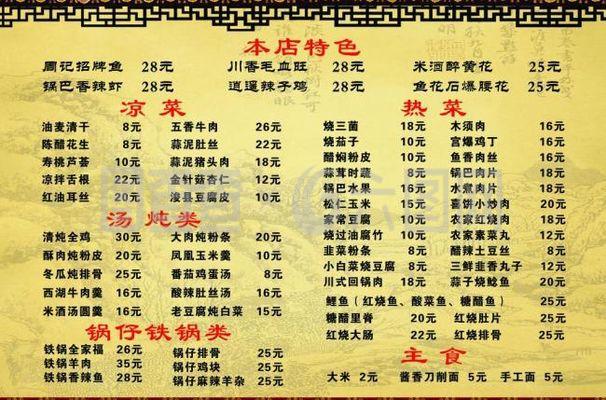 本店特色
周记招牌鱼 28元 川香毛血旺 28元 米酒醉黄花 25元
锅巴香辣虾 28元 逍遥辣子鸡 28元 鱼花石爆腰花 25元
凉菜
油麦清干 8元 五香牛肉 26元
陈醋花生 8元 蒜泥肚丝 22元
寿桃芦荟 10元 蒜泥猪头肉 18元
凉拌舌根 22元 金针菇杏仁 12元
红油耳丝 20元 浚县豆腐皮 10元
汤 炖类
清炖全鸡 30元 大肉炖粉条 20元
酥肉炖粉皮 20元 凤凰玉米羹 10元
冬瓜炖排骨 25元 番茄鸡蛋汤 8元
西湖牛肉羹 16元 酸辣肚丝汤 16元
米酒汤圆羹 16元 老豆腐炖白菜 15元
锅仔铁锅类
铁锅全家福 26元 锅仔排骨 25元
铁锅羊肉 35元 锅仔鸡块 25元
铁锅香辣鱼 28元 锅仔麻辣羊杂 25元
热菜
烧三菌 18元 木须肉 16元
烧茄子 10元 宫爆鸡丁 16元
醋焖粉皮 10元 鱼香肉丝 16元
蒜茸时蔬 8元 锅巴肉片 18元
锅巴水果 16元 水煮肉片 18元
松仁玉米 15元 喜饼小炒肉 20元
家常豆腐 10元 农家红烧肉 18元
烧过油腐竹 10元 农家素菜丸 12元
韭菜粉条 8元 醋辣土豆丝 8元
小白菜烧豆腐 8元 三鲜韭香丸子 12元
川式回锅肉 18元 蒜子烧鲶鱼 20元
鲤鱼（红烧鱼、酸菜鱼、糖醋鱼） 25元
糖醋里脊 20元 红烧肚片 25元
红烧大肠 22元 红烧排骨 25元
主食
大米 2元 酱香刀削面 5元 手工面 5元